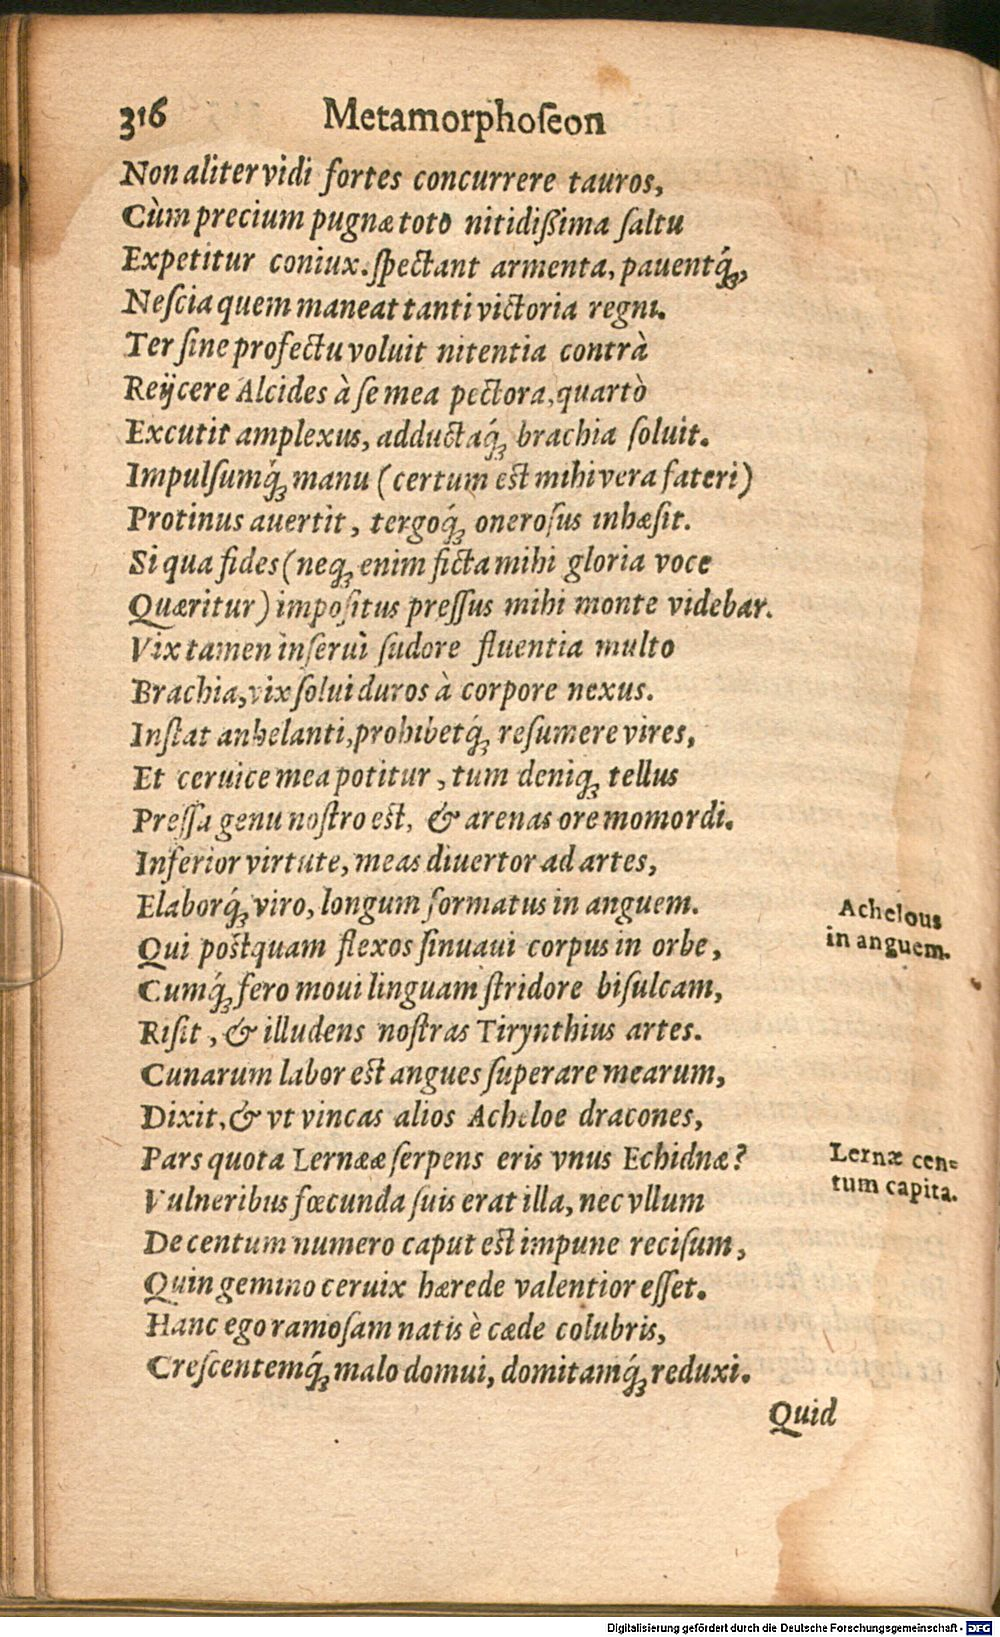 316 Metamorphoſeon
Non aliter vidi fortes concurrere tauros,
Cùm precium pugnæ toto nitidißima ſaltu
Expetitur coniux. ſpectant armenta, pauentq́ꝫ,
Neſcia quem maneat tanti victoria regni.
Ter ſine profectu voluit nitentia contrà
Reijcere Alcides à ſe mea pectora, quartò
Excutit amplexus, adductaq́ꝫ brachia ſoluit.
Impulſumq́ꝫ manu (certum est mihi vera fateri)
Protinus auertit, tergoq́ꝫ oneroſus inhæſit.
Si qua fides (neqꝫ enim ficta mihi gloria voce
Quæritur) impoſitus preſſus mihi monte videbar.
Vix tamen inſerui ſudore fluentia multo
Brachia, vix ſolui duros à corpore nexus.
Inſtat anhelanti, prohibetq́ꝫ reſumere vires,
Et ceruice mea potitur, tum deniqꝫ tellus
Preſſa genu noſtro est, & arenas ore momordi.
Inferior virtute, meas diuertor ad artes,
Elaborq́ꝫ viro, longum formatus in anguem.
Achelous
in anguem.
Qui postquam flexos ſinuaui corpus in orbe,
Cumq́ꝫ fero moui linguam ſtridore biſulcam,
Riſit, & illudens noſtras Tirynthius artes.
Cunarum labor est angues ſuperare mearum,
Dixit, & vt vincas alios Acheloe dracones,
Pars quota Lernææ ſerpens eris vnus Echidnæ?
Lernæ cen=
tum capita.
Vulneribus fœcunda ſuis erat illa, nec vllum
De centum numero caput est impune reciſum,
Quin gemino ceruix hærede valentior eſſet.
Hanc ego ramoſam natis è cæde colubris,
Creſcentemq́ꝫ malo domui, domitamq́ꝫ reduxi.
Quid
Digitalisierung gefördert durch die Deutsche Forschungsgemeinschaft - DFG